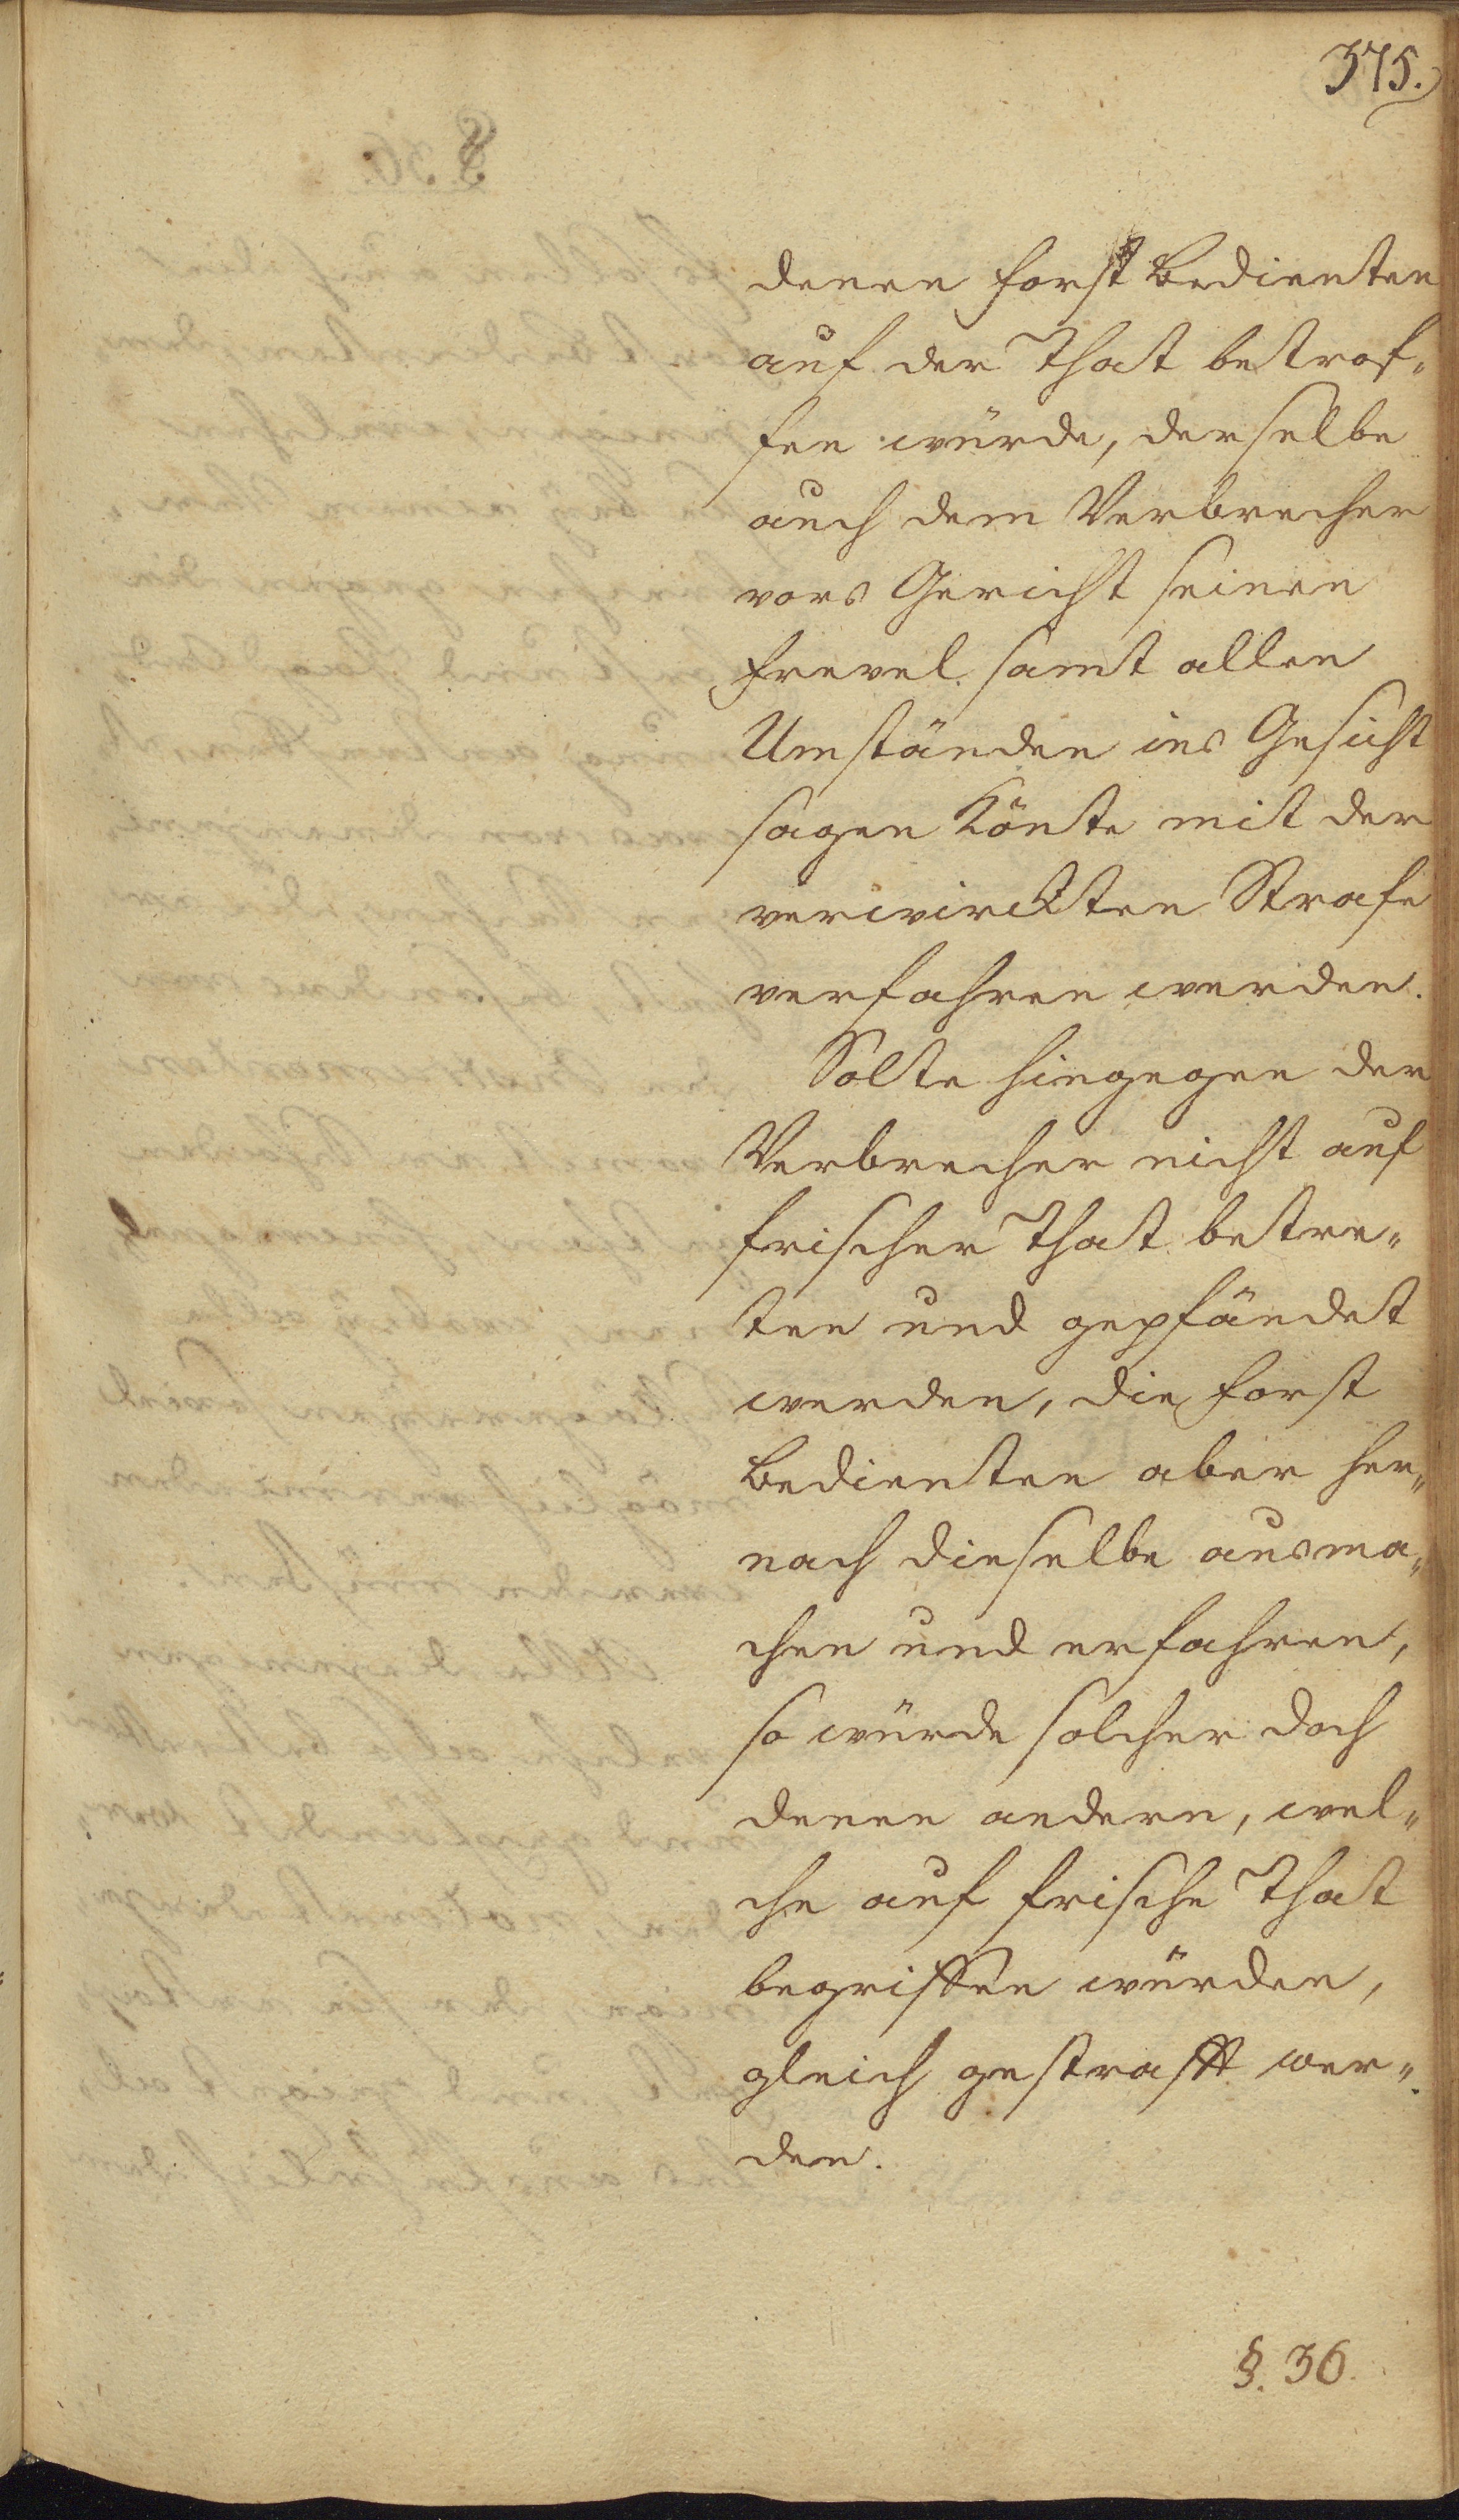 375.
denen Forst Bedienten
auf der That betrof„
fen würde, derselbe
auch dem Verbrecher
vors Gericht seinen
Frevel samt allen
Umständen ins Gesicht
sagen könte mit der
verwirckten Strafe
verfahren werden.
Solte hingegen der
Verbrecher nicht auf
frischer That betre„
ten und gepfändet
werden, die Forst
Bedienten aber her„
nach dieselbe ausma„
chen und erfahren,
so würde solcher doch
denen andern, wel„
che auf frische That
begriffen würden,
gleich gestrafft wer„
den.
§. 36.